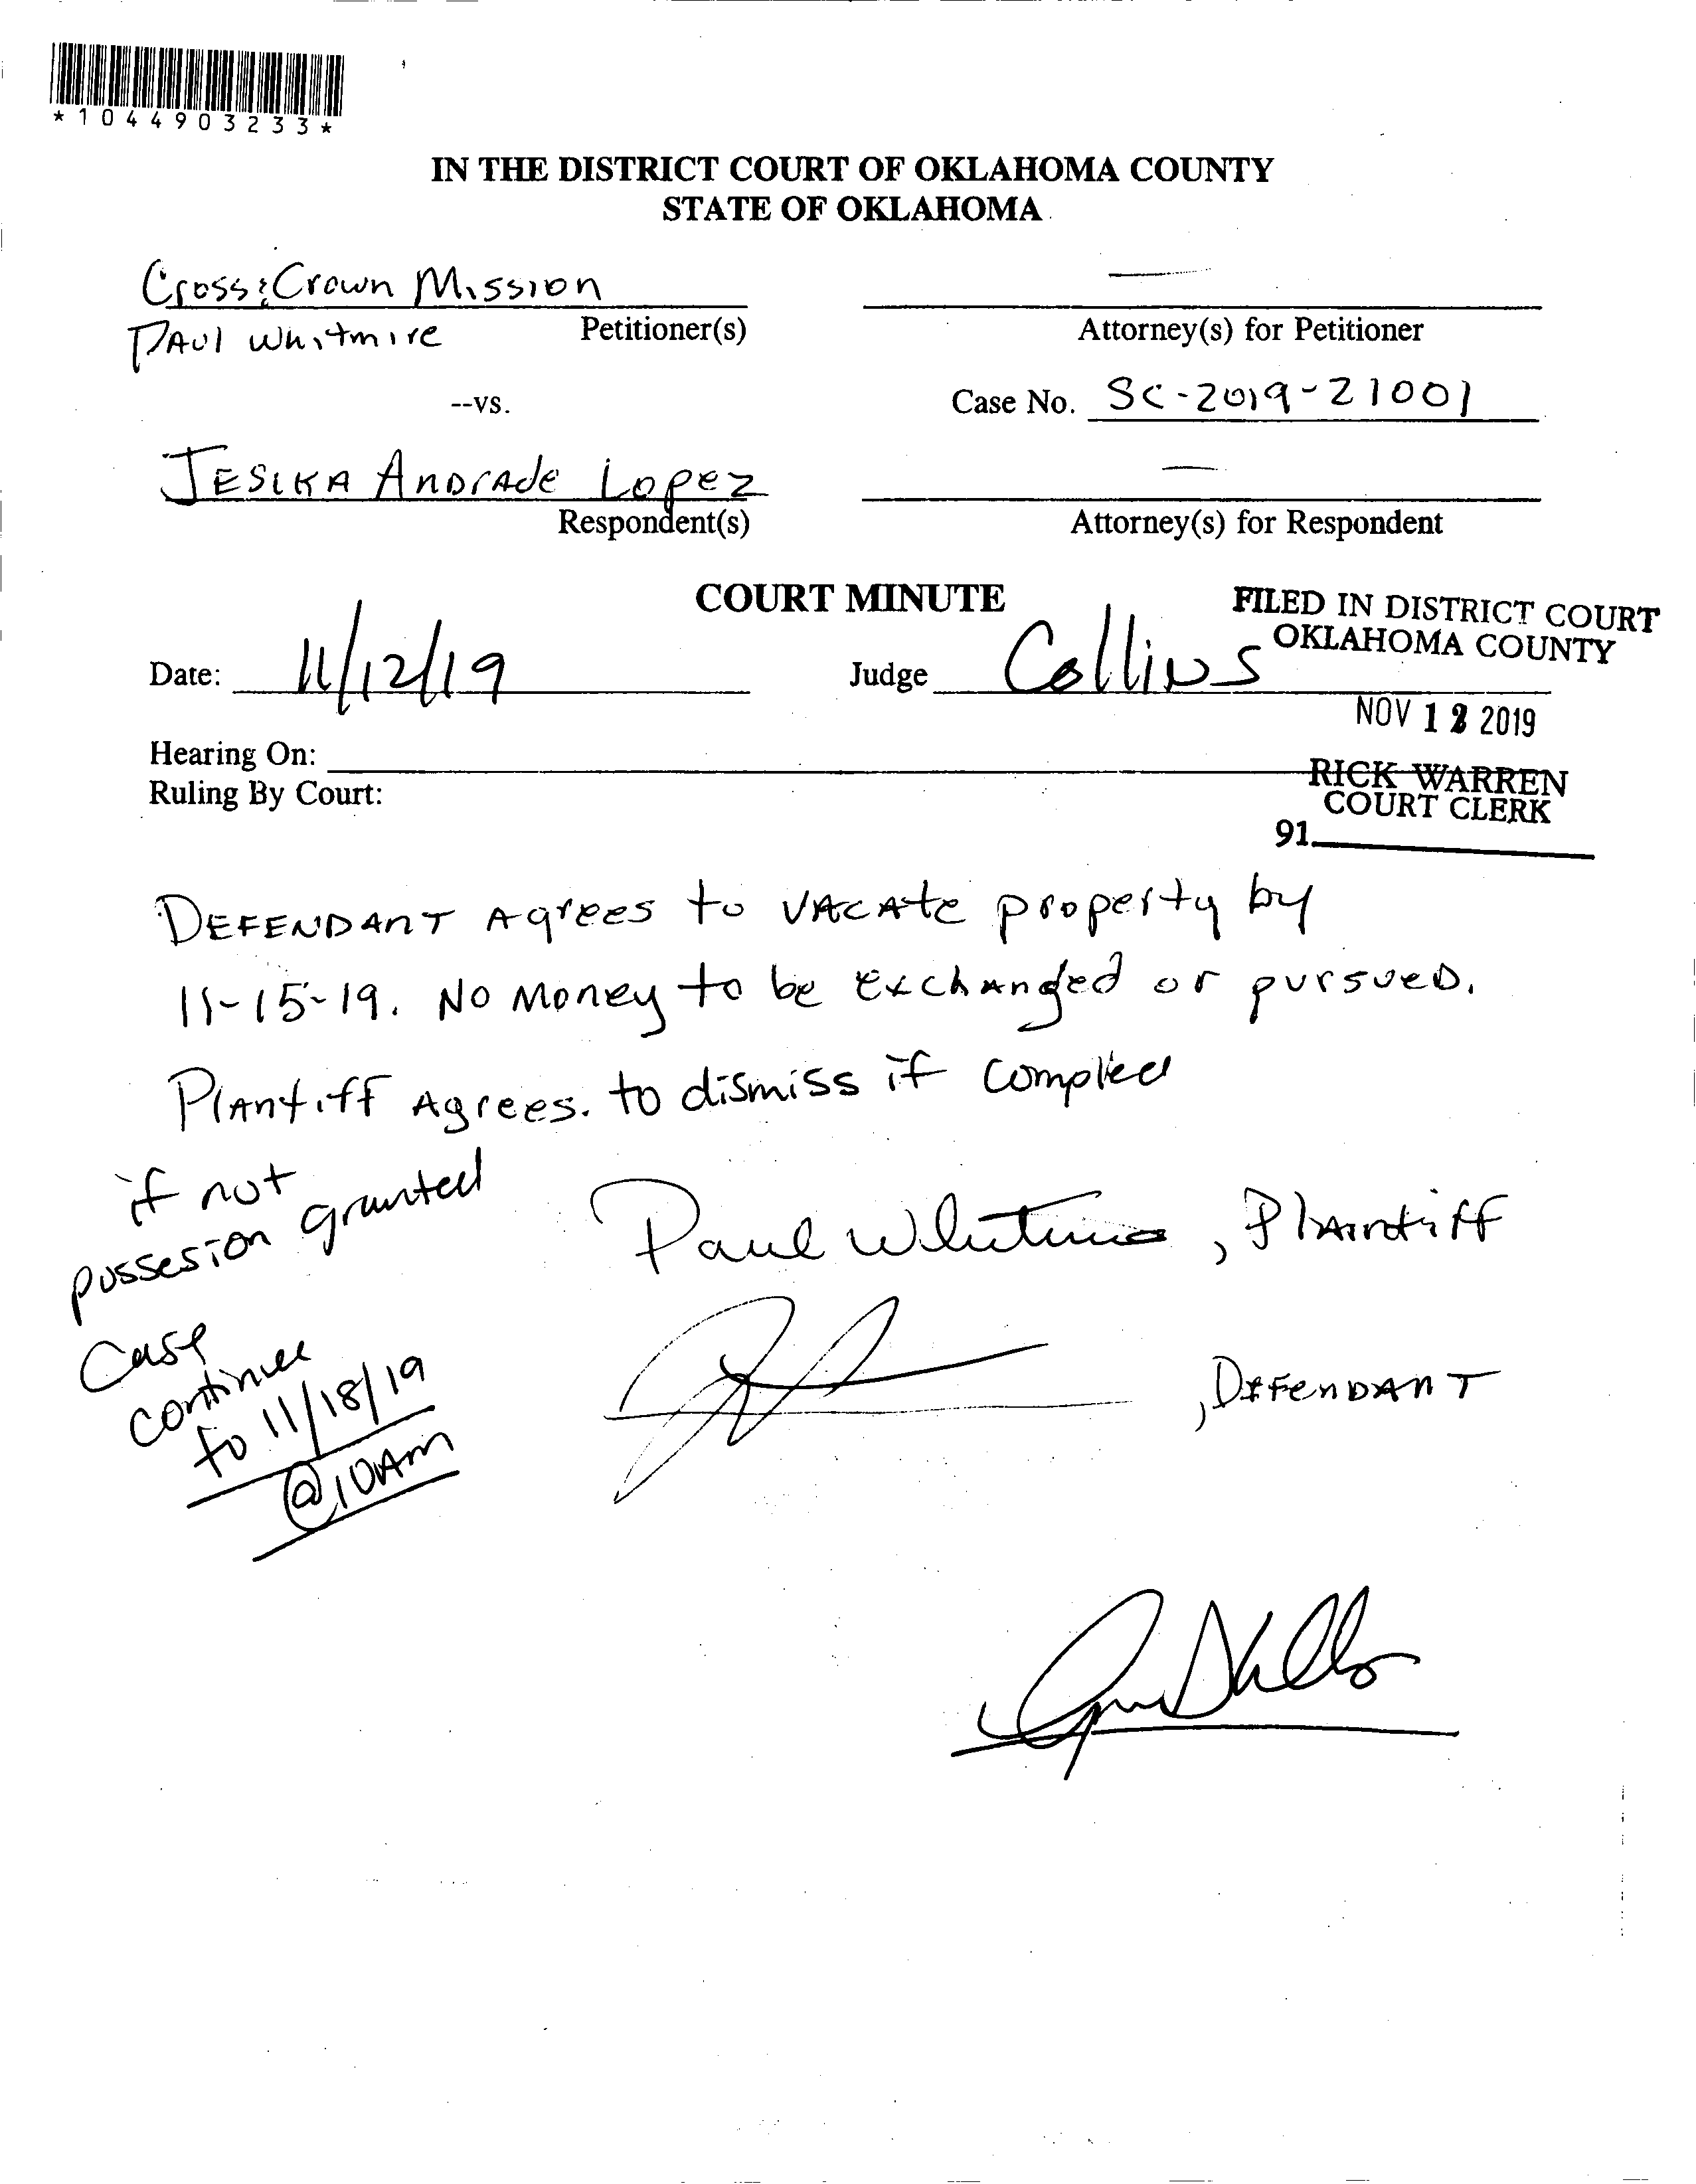 *1044903233*
IN THE DISTRICT COURT OF OKLAHOMA COUNTY
STATE OF OKLAHOMA
Cross & Crown Mission
Paul Whitmire Petitioner(s)
Attorney(s) for Petitioner
--vs.
Case No. SC-2019-21001
JESIKA ANDRADE LOPEZ
Respondent(s)
Attorney(s) for Respondent
COURT MINUTE
FILED IN DISTRICT COURT
OKLAHOMA COUNTY
Date: 11/12/19
Judge Collins
NOV 12 2019
Hearing On:
Ruling By Court:
RICK WARREN
COURT CLERK
91
DEFENDANT Agrees to VACAte property by
11-15-19. No Money to be Exchanged or pursued.
Plantiff Agrees. to dismiss if complied
if not
possesion granted
Case
continued
to 11/18/19
@10Am
Paul Whitmire, Plaintiff
, DEFENDANT